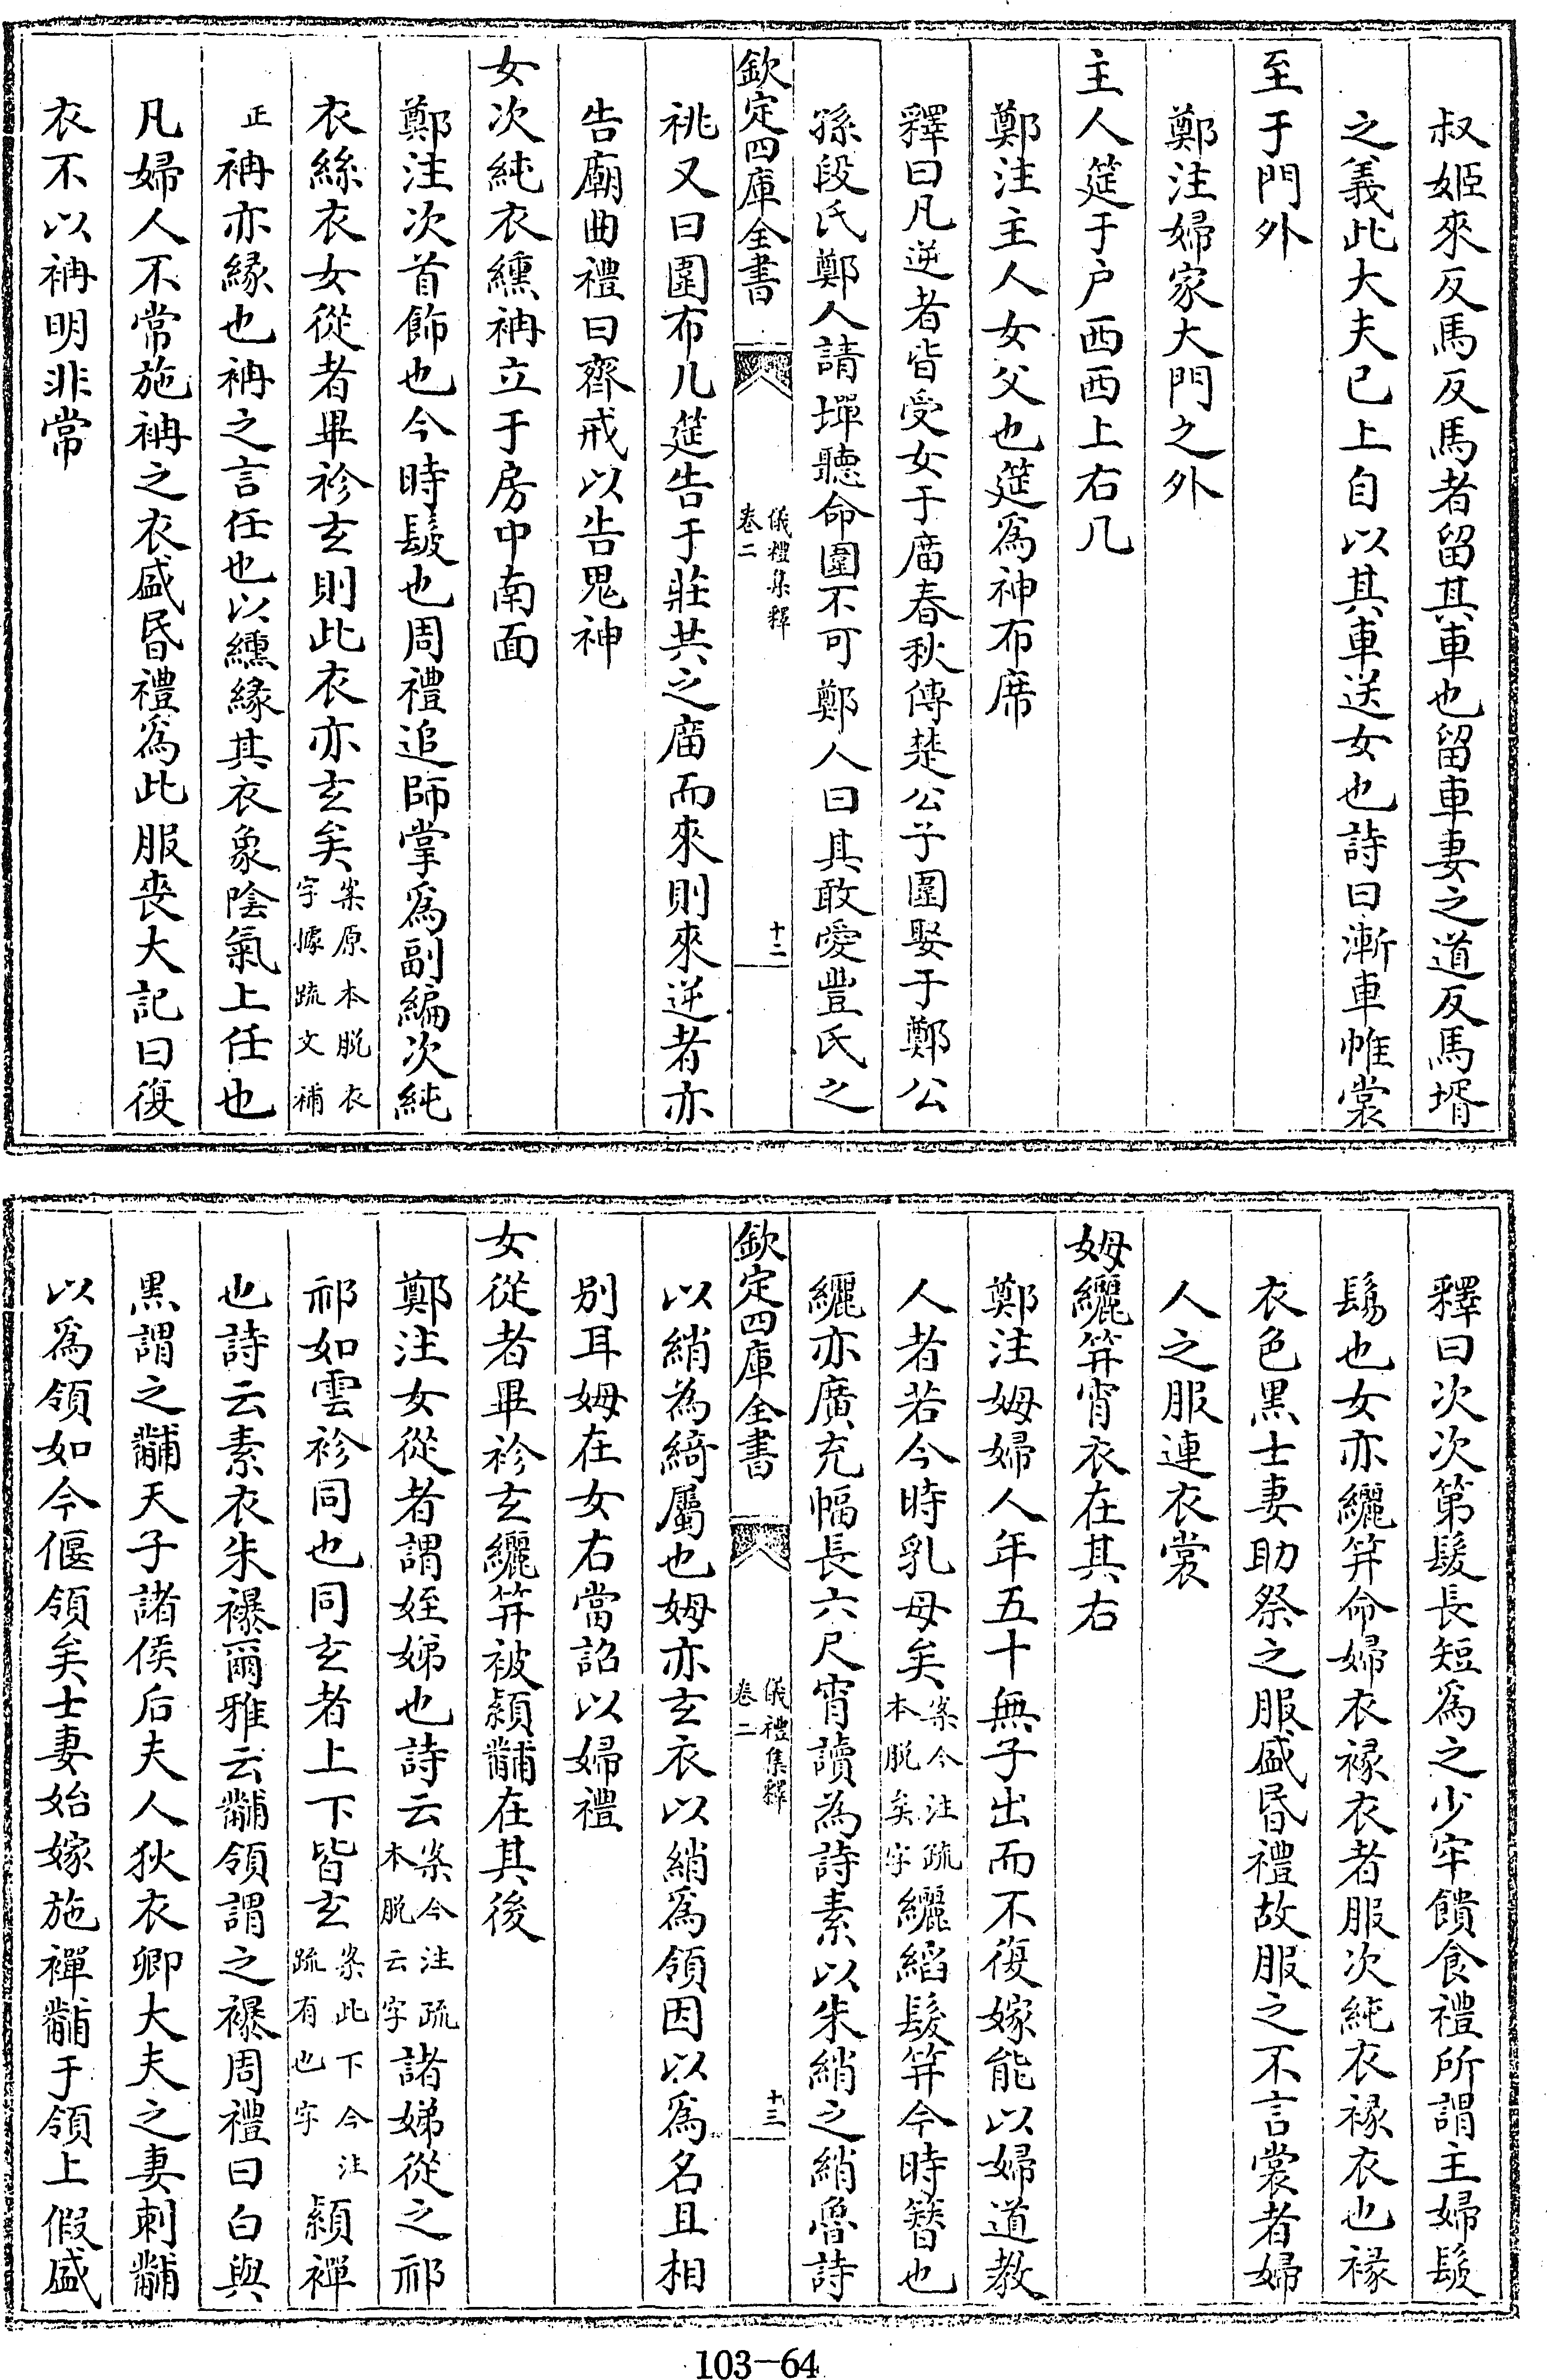 叔姬來反馬反馬者留其車也留車妻之道反馬壻
之義此大夫已上自以其車送女也詩曰漸車帷裳
至于門外
鄭注婦家大門之外
主人筵于户西西上右几
鄭注主人女父也筵爲神布席
釋曰凡逆者皆受女于廟春秋傳楚公子圍娶于鄭公
孫段氏鄭人請墠聽命圍不可鄭人曰其敢愛豐氏之
欽定四庫全書
儀禮集釋
卷二
十二
祧又曰圍布几筵告于莊共之廟而來則來逆者亦
告廟曲禮曰齊戒以告鬼神
女次純衣纁袡立于房中南面
鄭注次首飾也今時髲也周禮追師掌爲副編次純
衣絲衣女從者畢袗玄則此衣亦玄矣案原本脱衣字據疏文補
正袡亦緣也袡之言任也以纁緣其衣象陰氣上任也
凡婦人不常施袡之衣盛昏禮爲此服喪大記曰復
衣不以袡明非常
釋曰次次第髲長短爲之少牢饋食禮所謂主婦髲
鬄也女亦纚笄命婦衣褖衣者服次純衣褖衣也褖
衣色黑士妻助祭之服盛昏禮故服之不言裳者婦
人之服連衣裳
姆纚笄宵衣在其右
鄭注姆婦人年五十無子出而不復嫁能以婦道教
人者若今時乳母矣案今注疏本脱矣字纚縚髮笄今時簪也
纚亦廣充幅長六尺宵讀為詩素以朱綃之綃魯詩
欽定四庫全書
儀禮集釋
卷二
十三
以綃為綺屬也姆亦玄衣以綃爲領因以爲名且相
别耳姆在女右當詔以婦禮
女從者畢袗玄纚笄被熲黼在其後
鄭注女從者謂姪娣也詩云案今注疏本脱云字諸娣從之祁
祁如雲袗同也同玄者上下皆玄案此下今注疏有也字熲禪
也詩云素衣朱襮爾雅云黼領謂之襮周禮曰白與
黑謂之黼天子諸侯后夫人狄衣卿大夫之妻刺黼
以爲領如今偃領矣士妻始嫁施禪黼于領上假盛
103-64